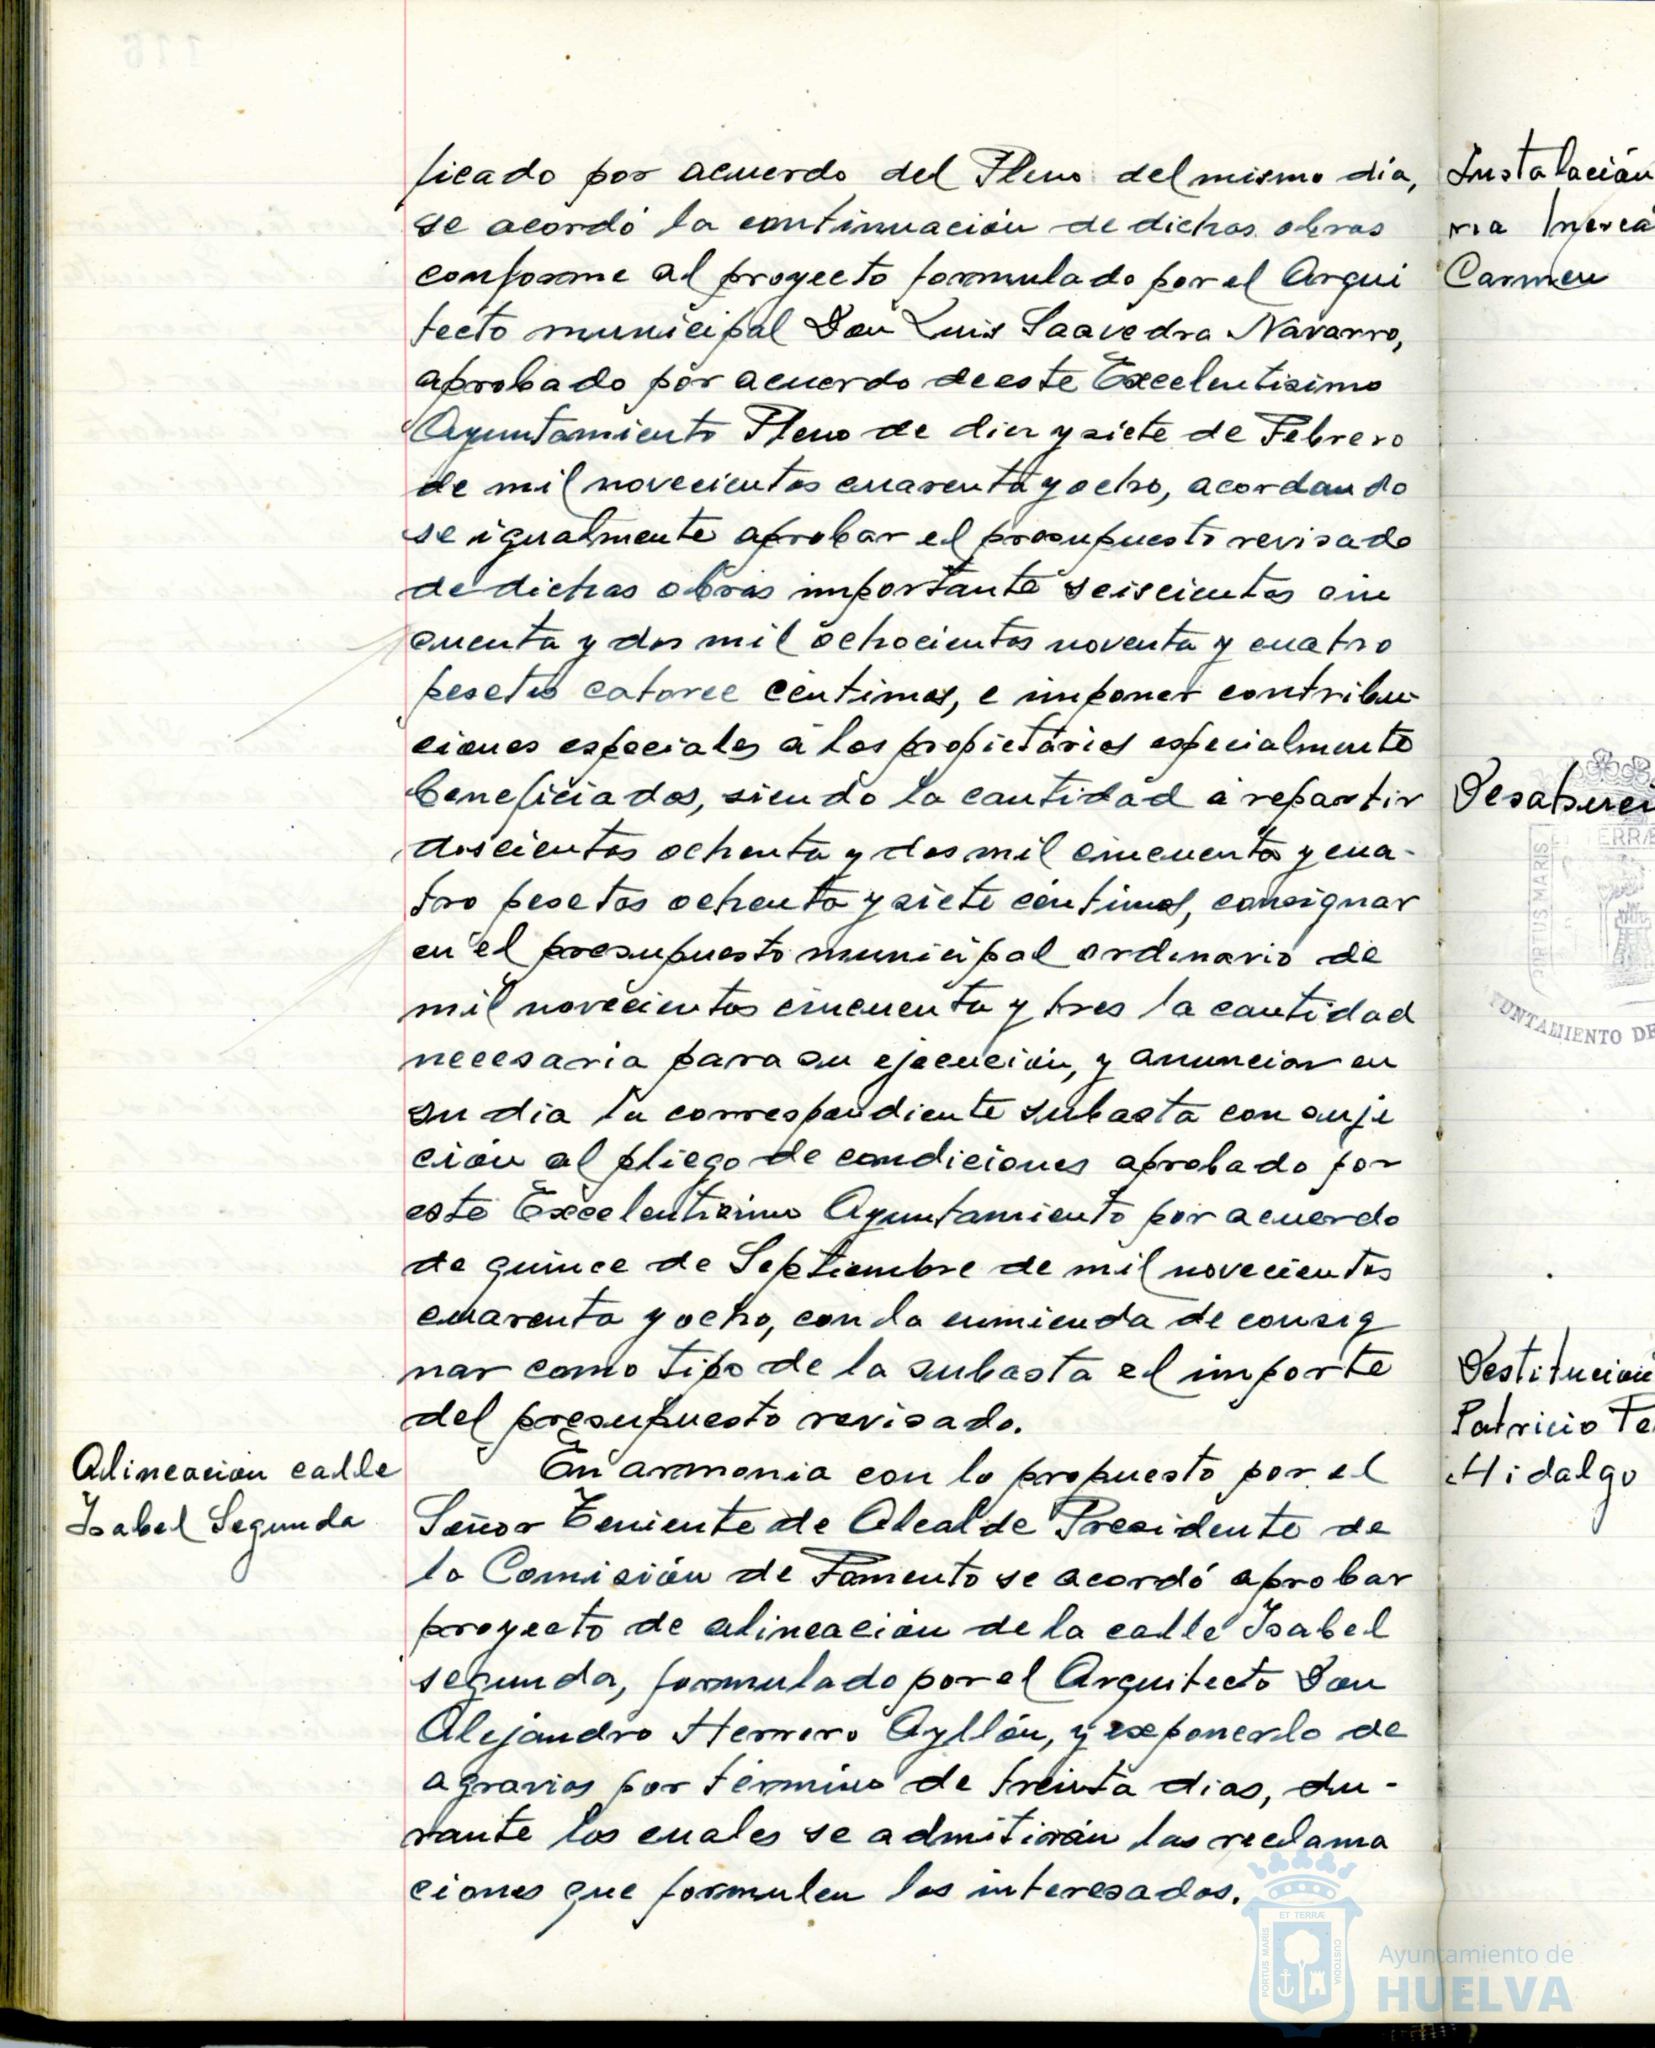 ficado por acuerdo del Pleno del mismo día,
se acordó la continuación de dichas obras
conforme al proyecto formulado por el Arqui
tecto municipal Don Luis Saavedra Navarro,
aprobado por acuerdo de este Excelentisimo
Ayuntamiento Pleno de diez y siete de Febrero
de mil novecientos cuarenta y ocho, acordando
se igualmente aprobar el presupuesto revisado
de dichas obras importante seiscientas cin
cuenta y dos mil ochocientas noventa y cuatro
pesetas catorce céntimos, e imponer contribu-
ciones especiales á los propietarios especialmente
beneficiados, siendo la cantidad a repartir
doscientas ochenta y dos mil cincuenta y cua-
tro pesetas ochenta y siete céntimos, consignar
en el presupuesto municipal ordinario de
mil novecientos cincuenta y tres la cantidad
necesaria para su ejecución, y anunciar en
su dia la correspondiente subasta con suje
ción al pliego de condiciones aprobado por
este Excelentisimo Ayuntamiento por acuerdo
de quince de Septiembre de mil novecientos
cuarenta y ocho, con la enmienda de consig
nar como tipo de la subasta el importe
del presupuesto revisado.
Alineación calle
Isabel Segunda
En armonia con lo propuesto por el
Señor Teniente de Alcalde Presidente de
la Comisión de Fomento se acordó aprobar
proyecto de alineación de la calle Isabel
segunda, formulado por el Arquitecto Don
Alejandro Herrero Ayllón, y exponerlo de
agravios por término de treinta dias, du-
rante los cuales se admitirán las reclama
ciones que formulen los interesados.
Instalación
ria
Carmen
Desahuci
Destitución
Patricio Fe
Hidalgo
ET TERRÆ
PORTUS MARIS
YUNTAMIENTO DE
ET TERRÆ
PORTUS MARIS
CUSTODIA
Ayuntamiento de
HUELVA
116